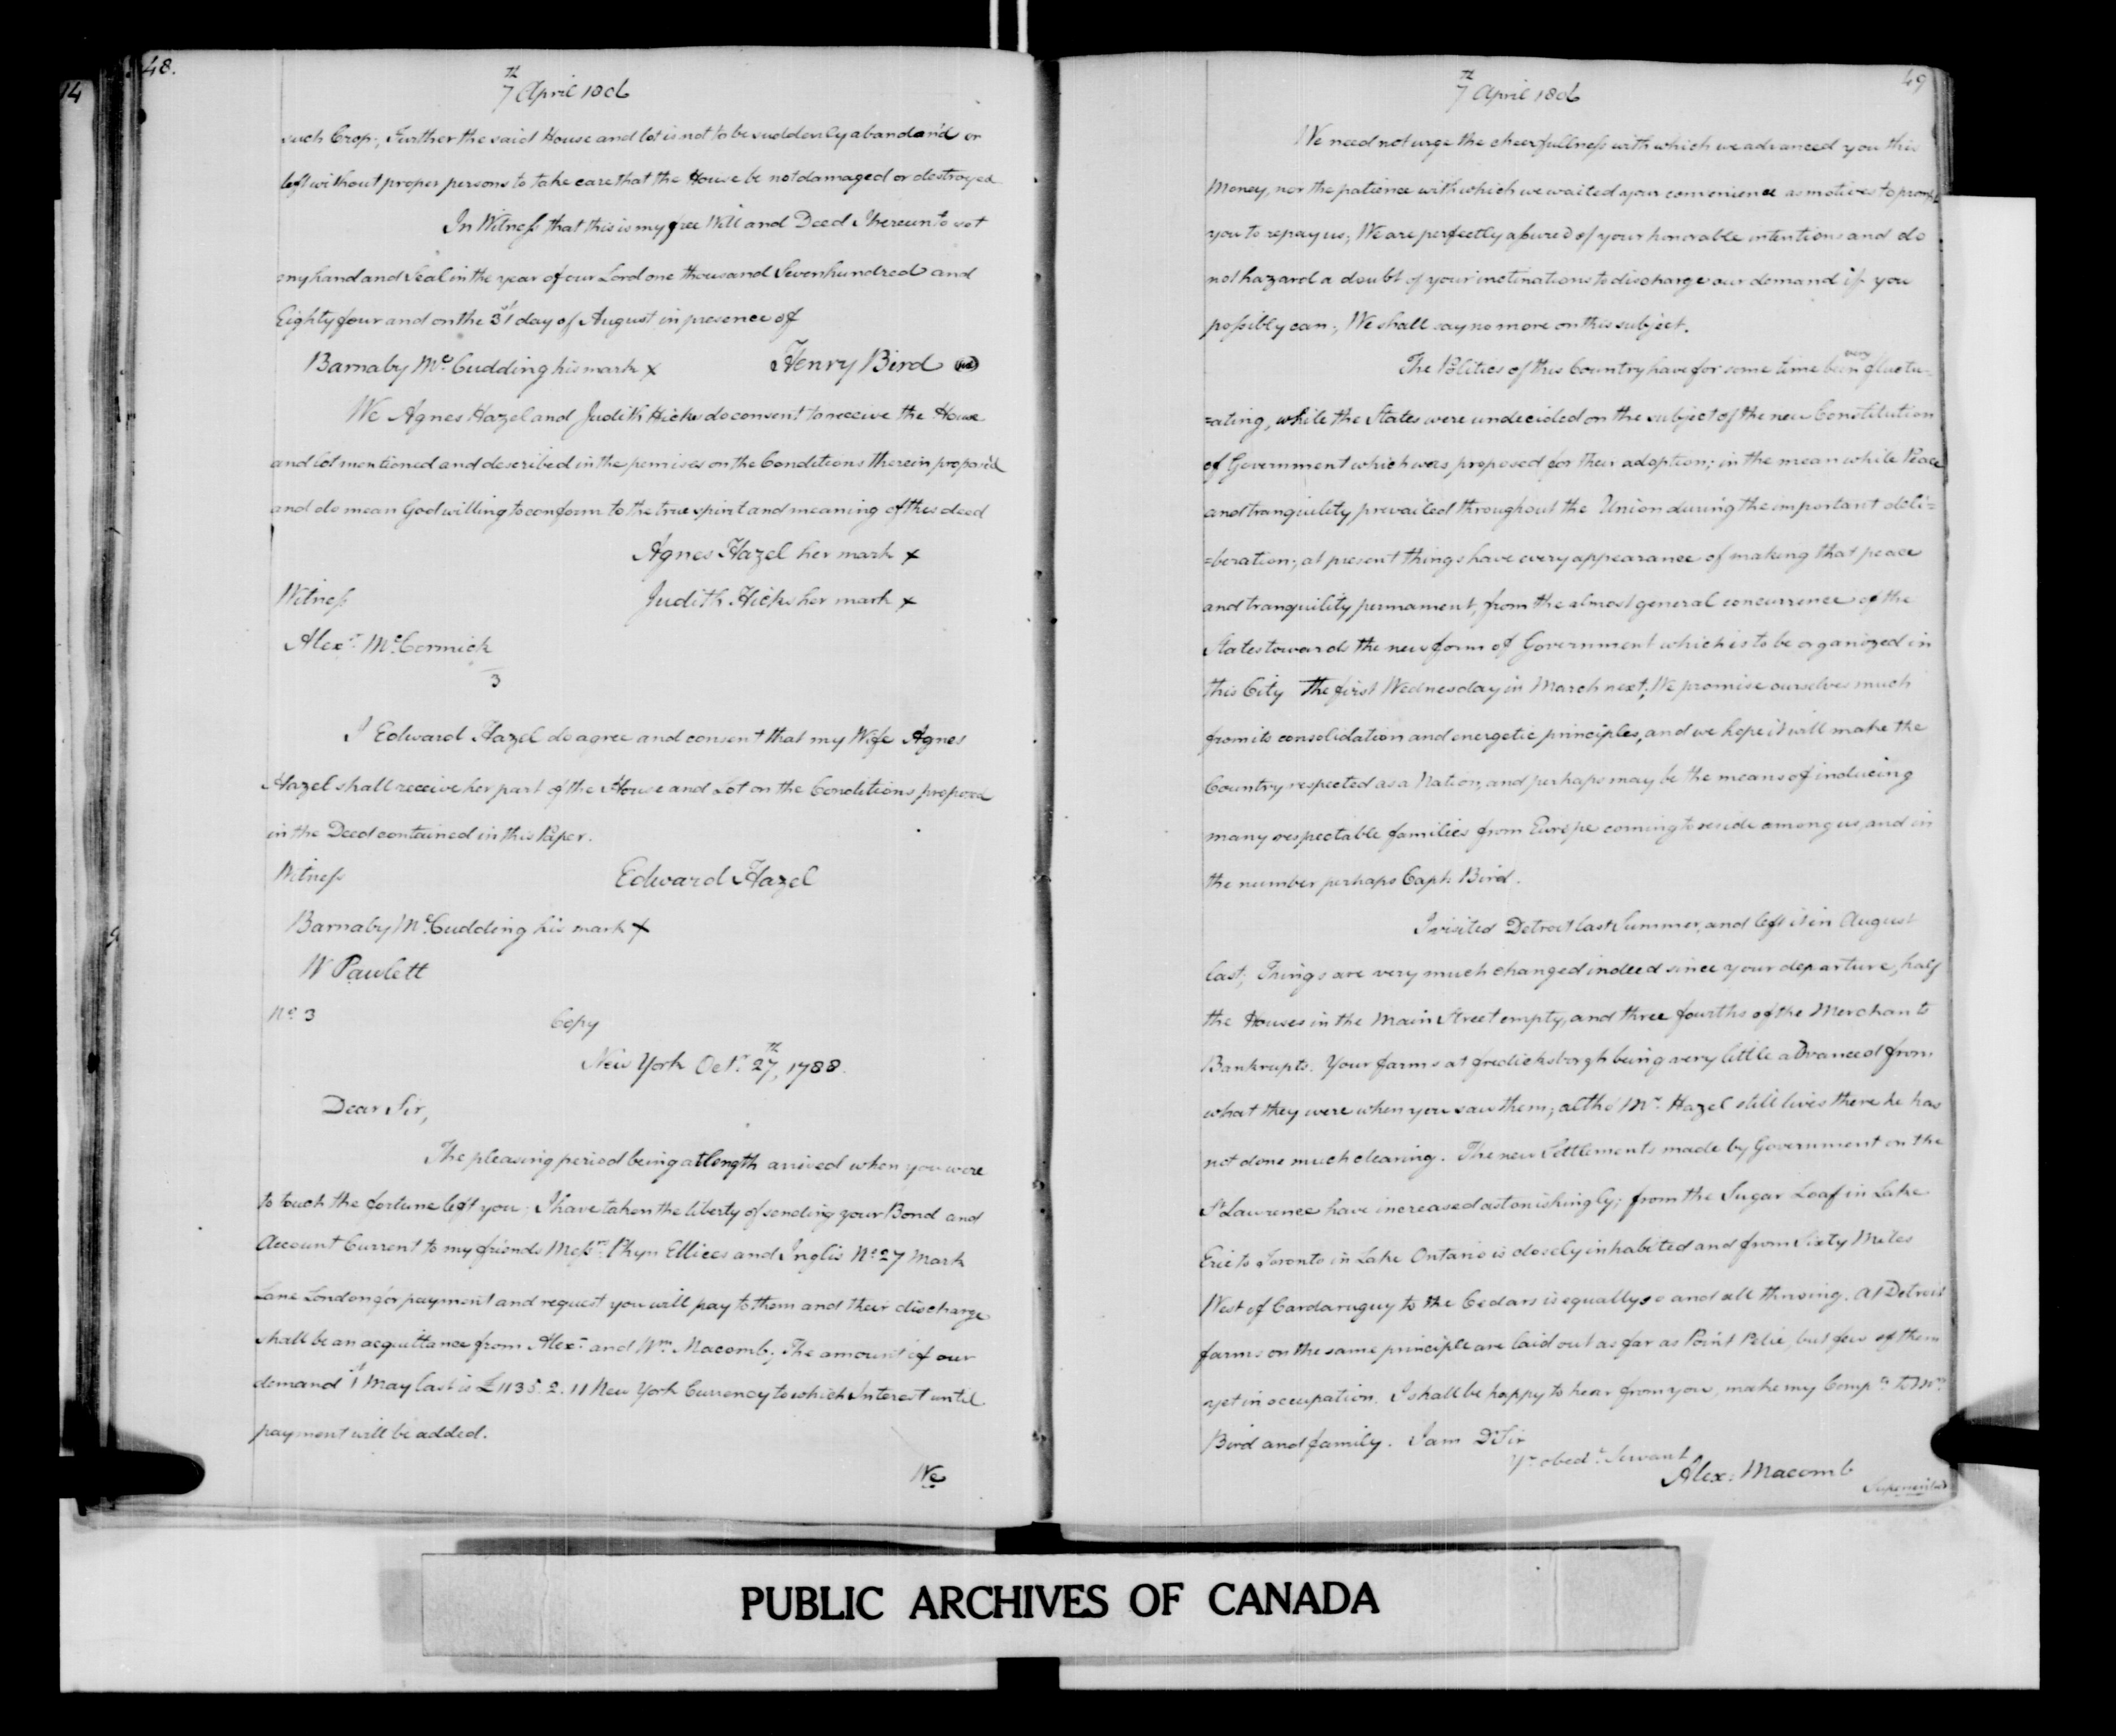 14
48.
7th April 1806
such Crop; Further the said House and lot is not to be suddenly abandon'd or
left without proper persons to take care that the House be not damaged or destroyed
In Witness that this is my free Will and Deed I hereunto set
my hand and Seal in the year of our Lord one thousand Seven hundred and
Eighty four and on the 31st day of August in presence of
Barnaby McCudding his mark x Henry Bird
We Agnes Hazel and Judith Hicks do consent to receive the House
and lot mentioned and described in the premises on the Conditions therein propos'd
and do mean God willing to conform to the true spirit and meaning of this deed
Agnes Hazel her mark x
Witness Judith Hicks her mark x
Alexr. McCormick
3
I Edward Hazel do agree and consent that my Wife Agnes
Hazel shall receive her part of the House and Lot on the Conditions proposed
in the Deed contained in this Paper.
Witness Edward Hazel
Barnaby McCudding his mark x
W Pawlett
No. 3 Copy
New York Octr. 27th, 1788.
Dear Sir,
The pleasing period being at length arrived when you were
to touch the fortune left you; I have taken the liberty of sending your Bond and
Account Current to my friends Messrs. Phyn Ellices and Inglis No. 27 Mark
Lane London for payment and request you will pay to them and their discharge
shall be an acquittance from Alexr. and Wm. Macomb; The amount of our
demand 1st May last is £1135. 2. 11 New York Currency to which Interest until
payment will be added.
We
49
7th April 1806
We need not urge the cheerfullness with which we advanced you this
Money, nor the patience with which we waited your convenience as motives to prompt
you to repay us; We are perfectly assured of your honorable intentions and do
not hazard a doubt of your inclinations to discharge our demand if you
possibly can; We shall say no more on this subject.
The Politics of this Country have for some time been very fluctu=
=ating, while the States were undecided on the subject of the new Constitution
of Government which was proposed for their adoption; in the mean while Peace
and tranquility prevailed throughout the Union during the important deli=
=beration; at present things have every appearance of making that peace
and tranquility permament, from the almost general concurrence of the
States towards the new form of Government which is to be organized in
this City The first Wednesday in March next; We promise ourselves much
from its consolidation and energetic principles, and we hope it will make the
Country respected as a Nation, and perhaps may be the means of inducing
many respectable families from Europe coming to reside among us, and in
the number perhaps Capt. Bird.
I visited Detroit last Summer, and left it in August
last; Things are very much changed indeed since your departure, half
the Houses in the Main Street empty, and three fourths of the Merchants
Bankrupts. Your farms at fredicksborgh being very little advanced from
what they were when you saw them; altho' Mr. Hazel still lives there he has
not done much clearing. The new Settlements made by Government on the
St. Lawrence have increased astonishingly; from the Sugar Loaf in Lake
Erie to Toronto in Lake Ontario is closely inhabited and from Sixty Miles
West of Cardaruguy to the Cedars is equally so and all thriving. At Detroit
farms on the same principle are laid out as far as Point Pelie, but few of them
yet in occupation. I shall be happy to hear from you, make my Compts. to Mrs.
Bird and family. I am D Sir
Yr. obedt. Servant
Alex: Macomb
PUBLIC ARCHIVES OF CANADA